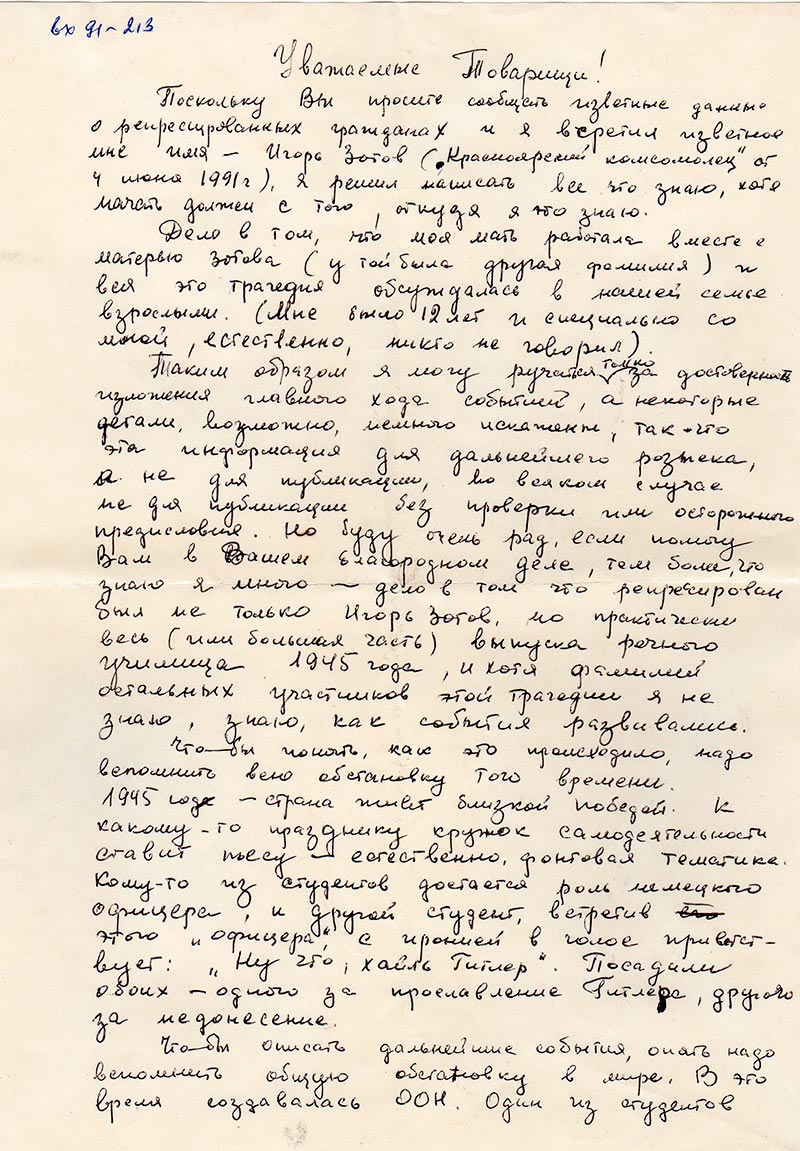 вх 91-213
Уважаемые Товарищи!
Поскольку Вы просите сообщать известные данные
о репресированных гражданах и я встретил известное
мне имя – Игорь Зотов („Красноярский комсомолец" от
4 июня 1991г), я решил написать все что знаю, хотя
начать должен с того, откуда я это знаю.
Дело в том, что моя мать работала вместе с
матерью Зотова (у той была другая фамилия) и
вся это трагедия обсуждалась в нашей семье
взрослыми. (Мне было 12 лет и специально со
мной, естественно, никто не говорил).
Таким образом я могу ручатся только за достоверность
изложения главного хода событий, а некоторые
детали, возможно, немного искажены, так-что
эта информация для дальнейшего розыска,
а не для публикации, во всяком случае
не для публикации без проверки или осторожного
предисловия. Но буду очень рад, если помогу
Вам в Вашем благородном деле, тем более, что
знаю я много – дело в том что репресирован
был не только Игорь Зотов, но практически
весь (или большая часть) выпуска речного
училища 1945 года, и хотя фамилий
остальных участников этой трагедии я не
знаю, знаю, как события развивались.
Что-бы понять, как это происходило, надо
вспомнить всю обстановку того времени.
1945 год – страна живет близкой победой. К
какому-то празднику кружок самодеятельности
ставит пьесу – естественно, фронтовая тематика.
Кому-то из студентов достается роль немецкого
офицера, и другой студент, встретив его
этого „офицера", с иронией в голосе приветст-
вует: „Ну что, хайль Гитлер". Посадили
обоих – одного за прославление Гитлера, другого
за недонесение.
Что-бы описать дальнейшие события, опять надо
вспомнить общую обстановку в мире. В это
время создавалась ООН. Один из студентов